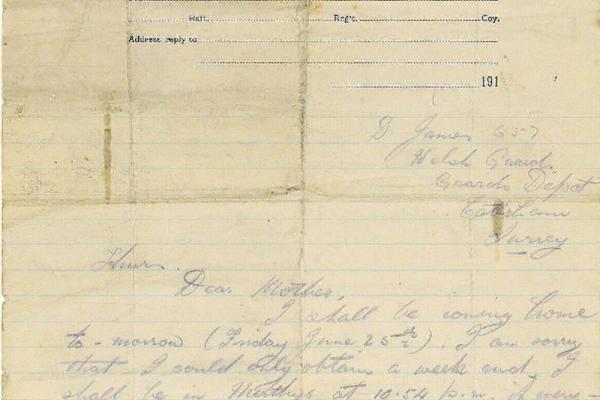 Batt. Reg't. Coy.
Address reply to
191
D. James 657
Welsh Guard.
Guards Depot
Caterham
Surrey
Thurs.
Dear Mother,
I shall be coming home
to-morrow (Friday June 25th). I am sorry
that I could only obtain a week end. I
shall be in Merthyr at 10.54 p.m. if every-